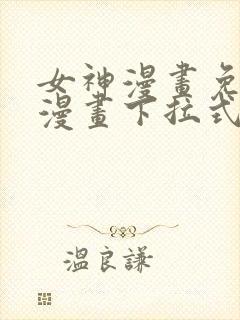 女神漫畫免
漫畫下拉式
溫良謙